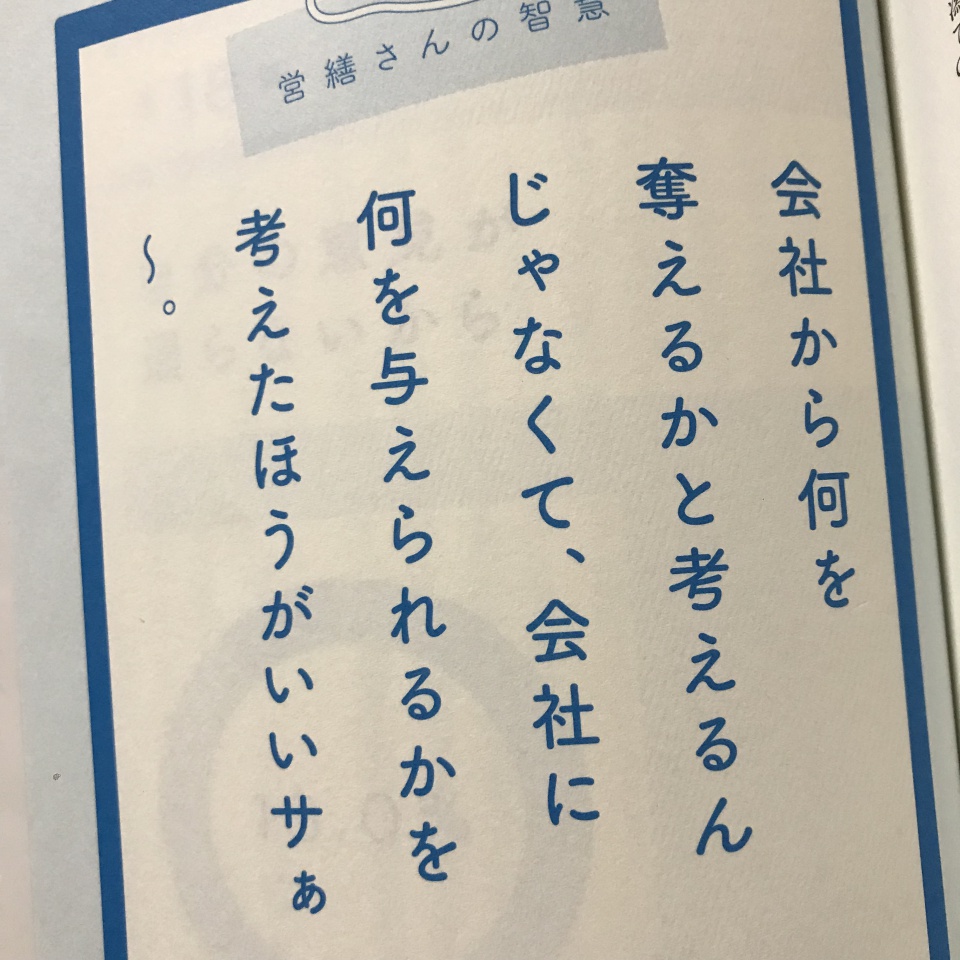 営繕さんの智慧
会社から何を
奪えるかと考えるん
じゃなくて、会社に
何を与えられるかを
考えたほうがいいサぁ
〜。